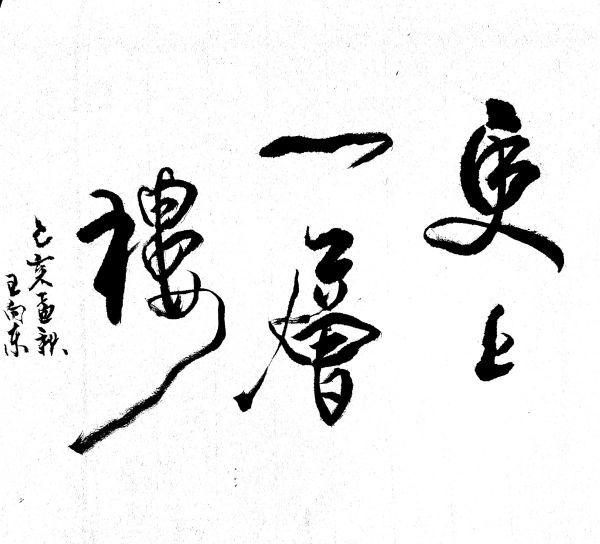 更上
一層
樓
己亥孟秋
王向东